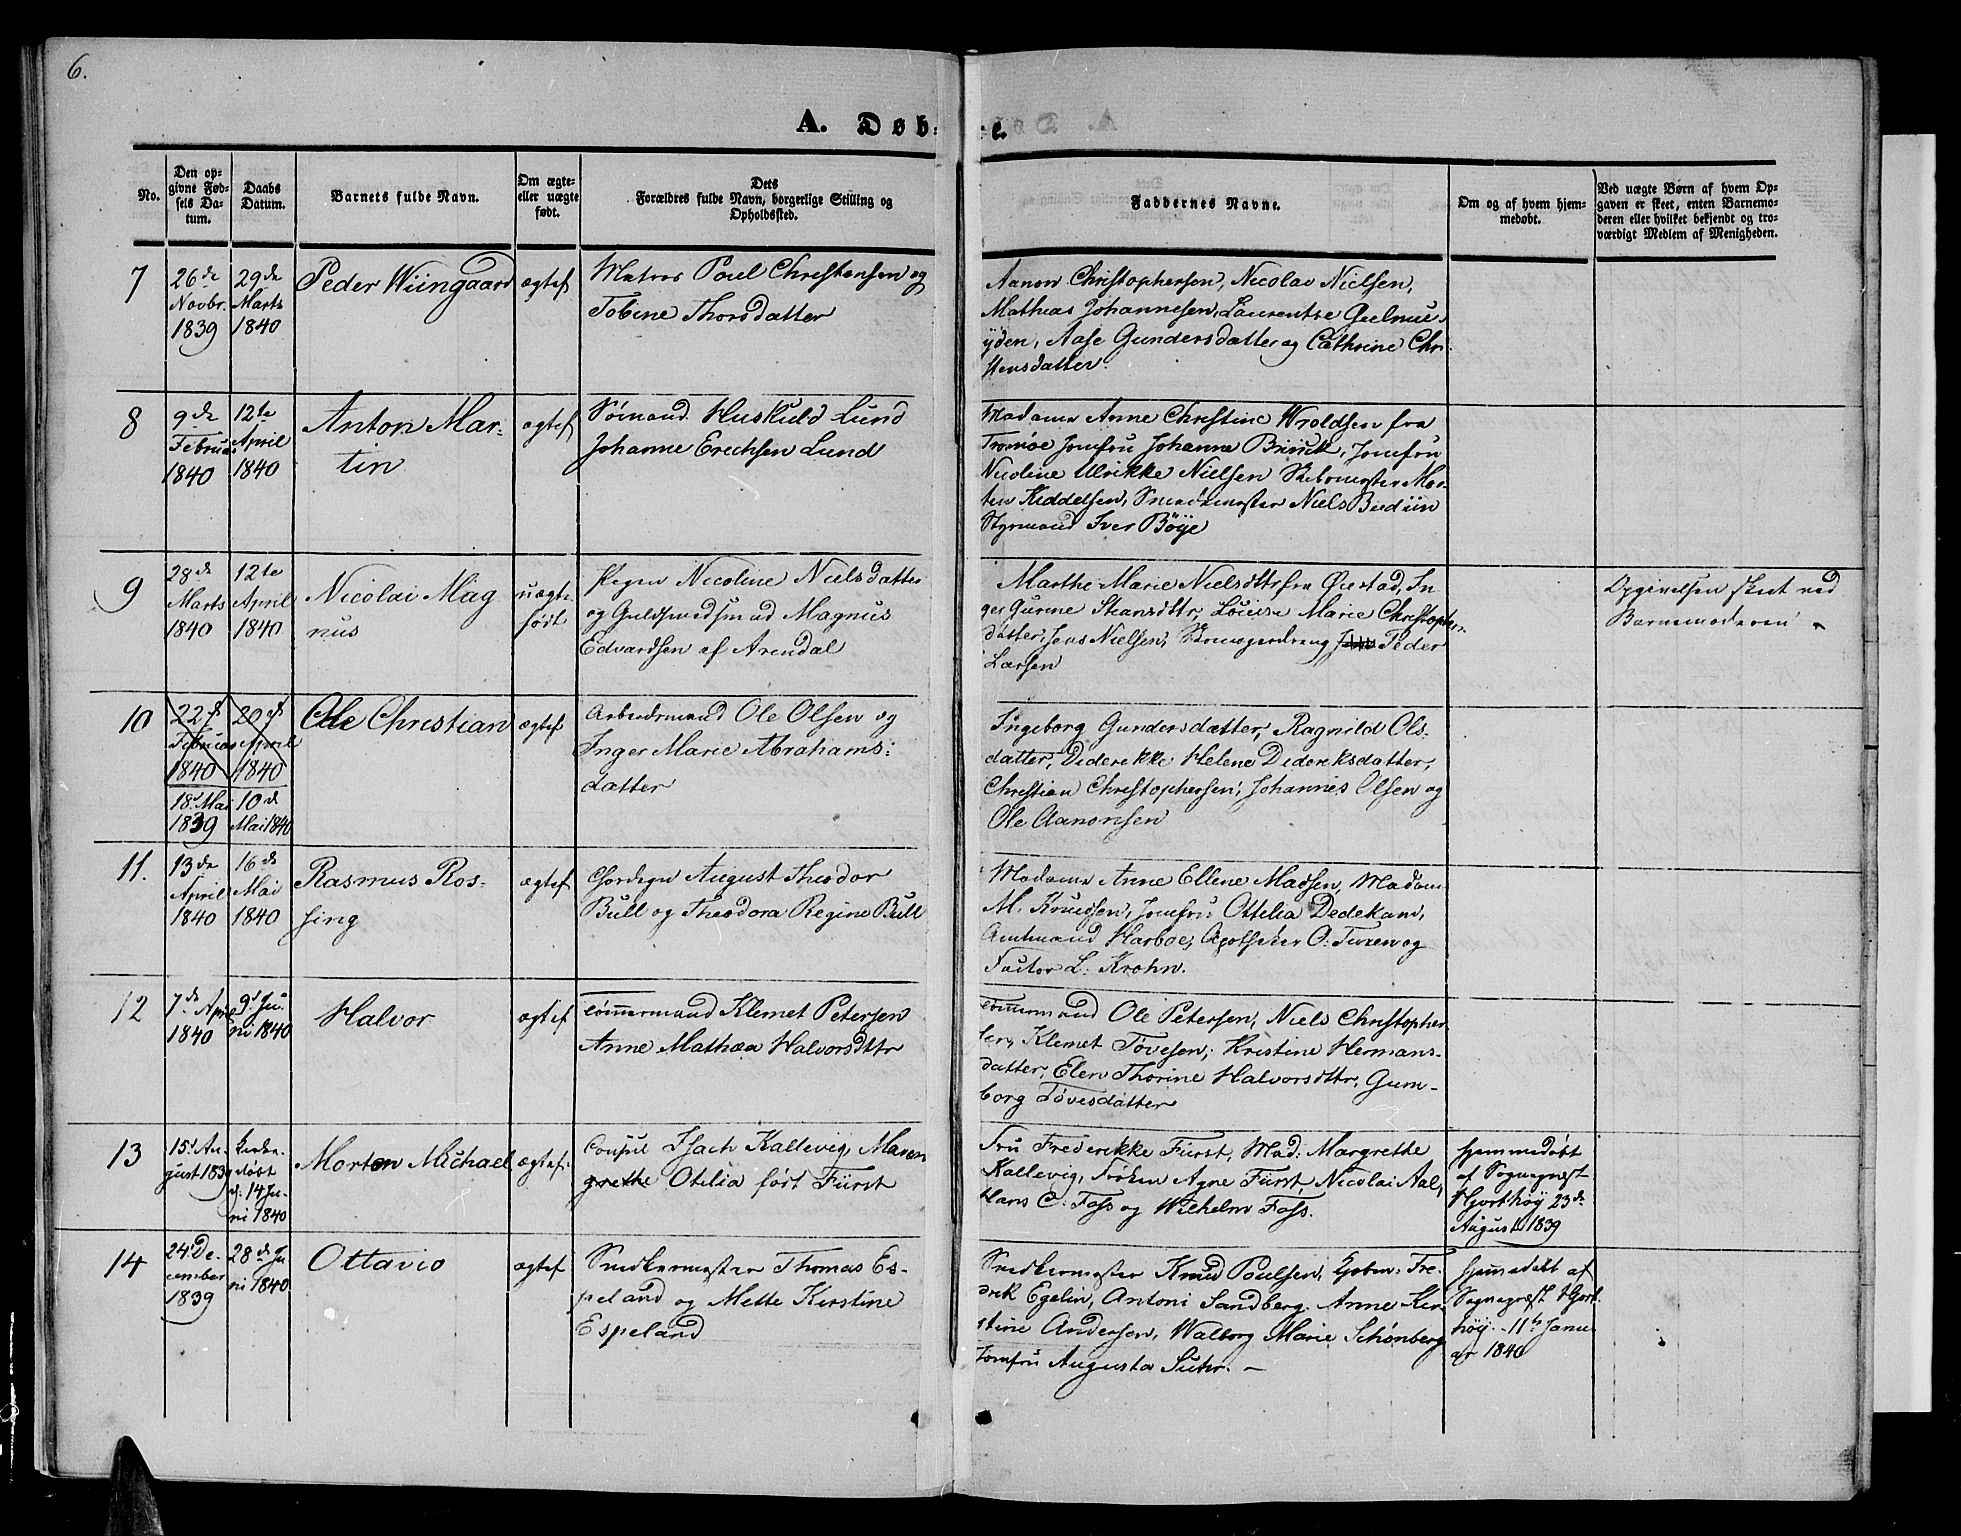 6.
A. Døb-
te.
No.
Den op-
givne Fød-
sels Da-
tum.
Daabs
Datum.
Barnets fulde Navn.
Om ægte-
eller uægte
født.
Dets
Forældres fulde Navn, borgerlige Stilling og
Opholdssted.
Faddernes Navne.
Om og af hvem hjem-
medøbt.
Ved uægte Børn af hvem Op-
gaven er skeet, enten Barnemo-
deren eller hvilket bekjendt og tro-
værdigt Medlem af Menigheden.
7
26de
Novbr.
1839
29de
Marts
1840
Peder Wiingaard
ægtef
Matros Poul Christensen og
Tobine Thorsdatter
Aanon Christophersen, Nicolai Nielsen,
Mathias Johannesen, Laurentse Gielmue-
yden, Aase Gundersdatter og Cathrine Chri-
stensdatter.
8
9de
Februar
1840
12te
April
1840
Anton Mar-
tin
ægtef
Sømand Huskuld Lund
Johanne Erechsen Lund
Madame Anne Christine Wroldsen fra
Tromøe Jomfru Johanne Brinck, Jomfru
Nicoline Ulrikke Nielsen Skibsmester Mor-
ten Kiddelsen, Smedemester Niels
Styrmand Iver Böye
9
28de
Marts
1840
12te
April
1840
Nicolai Mag
nus
uægte
født
Pigen Nicoline Nielsdatter
og Guldsmedsvend Magnus
Edvardsen af Arendal
Marthe Marie Nielsdttr fra Øiestad, In-
ger Gurine Steansdttr, Louise Marie Christopher-
datter, Jens Nielsen, Peder
Larsen
Opgivelsen skeet ved
Barnemoderen
10
22de
Februar
1840
18d Mai
1839
20de
April
1840
10de
Mai 1840
Ole Christian
ægtef
Arbeidsmand Ole Olsen og
Inger Marie Abrahams-
datter
Ingeborg Gundersdatter, Ragnild Ols-
datter, Diderekke Helene Dideriksdatter,
Christian Christophersen, Johannes Olsen og
Ole Aanonsen
11.
13de
April
1840
16de
Mai
1840
Rasmus Ros-
sing
ægtef
August Theodor
Bull og Theodora Regine Bull
Madame Anne Ellene Madsen, Madam
M. Knudsen, Jomfru Ottilia Dedekam,
Amtmand Harboe, Apotheker O. Tuxen og
Factor L. Krohn.
12
7de April
1840
9d Ju-
ni 1840
Halvor
ægtef
Tømmermand Klemet Petersen
Anne Mathea Halvorsdttr
Tømmermand Ole Petersen, Niels Christopher-
sen, Klemet Tövesen, Kristine Hermans-
datter, Elen Thorine Halvorsdttr, Gun-
borg Tövesdatter
13
15d Au-
gust 1839
Kirke-
døbt
d. 14 Ju-
ni 1840
Morten Michael
ægtef.
Consul Isach Kallevig, Maren
grethe Otilia født Fürst
Fru Frederekke Fürst, Mad: Margrethe
Kallevig, Frøken Agne Fürst, Nicolai Aal,
Hans C. Foss og Wilhelm Foss.
Hjemmedøbt
af Sognepræst
Hjorthøy 23de
August 1839
14
24d De-
cember
1839
28de Ju-
ni 1840
Ottavio
ægtef
Snedkermester Thomas Es-
peland og Mette Kirstine
Espeland
Snedkermester Knud Poulsen, Gjøbm: Fre-
drik Egelin, Antoni Sandberg, Anne Kir-
stine Andersen, Walborg Marie Schönberg
Jomfru Augusta Suhr. -
Hjemmedøbt af
Sognepræst Hjort-
høy - 11te Janu-
ar 1840